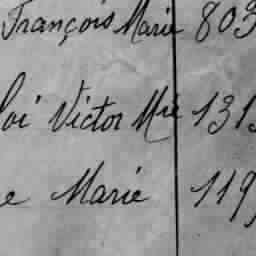 François Marie 803
loi Victor Mie 131
e Marie 119